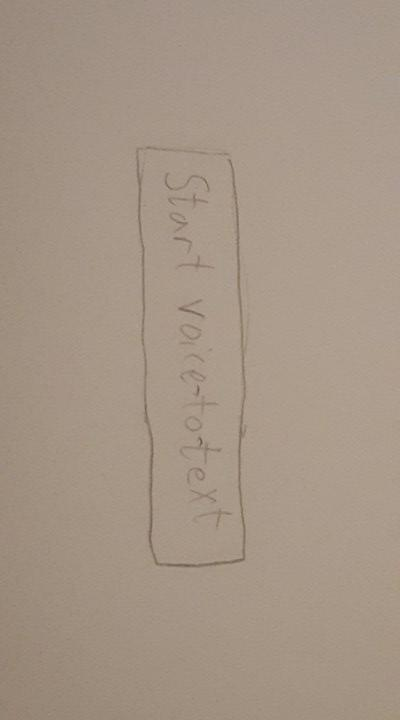 Start voice-to-text